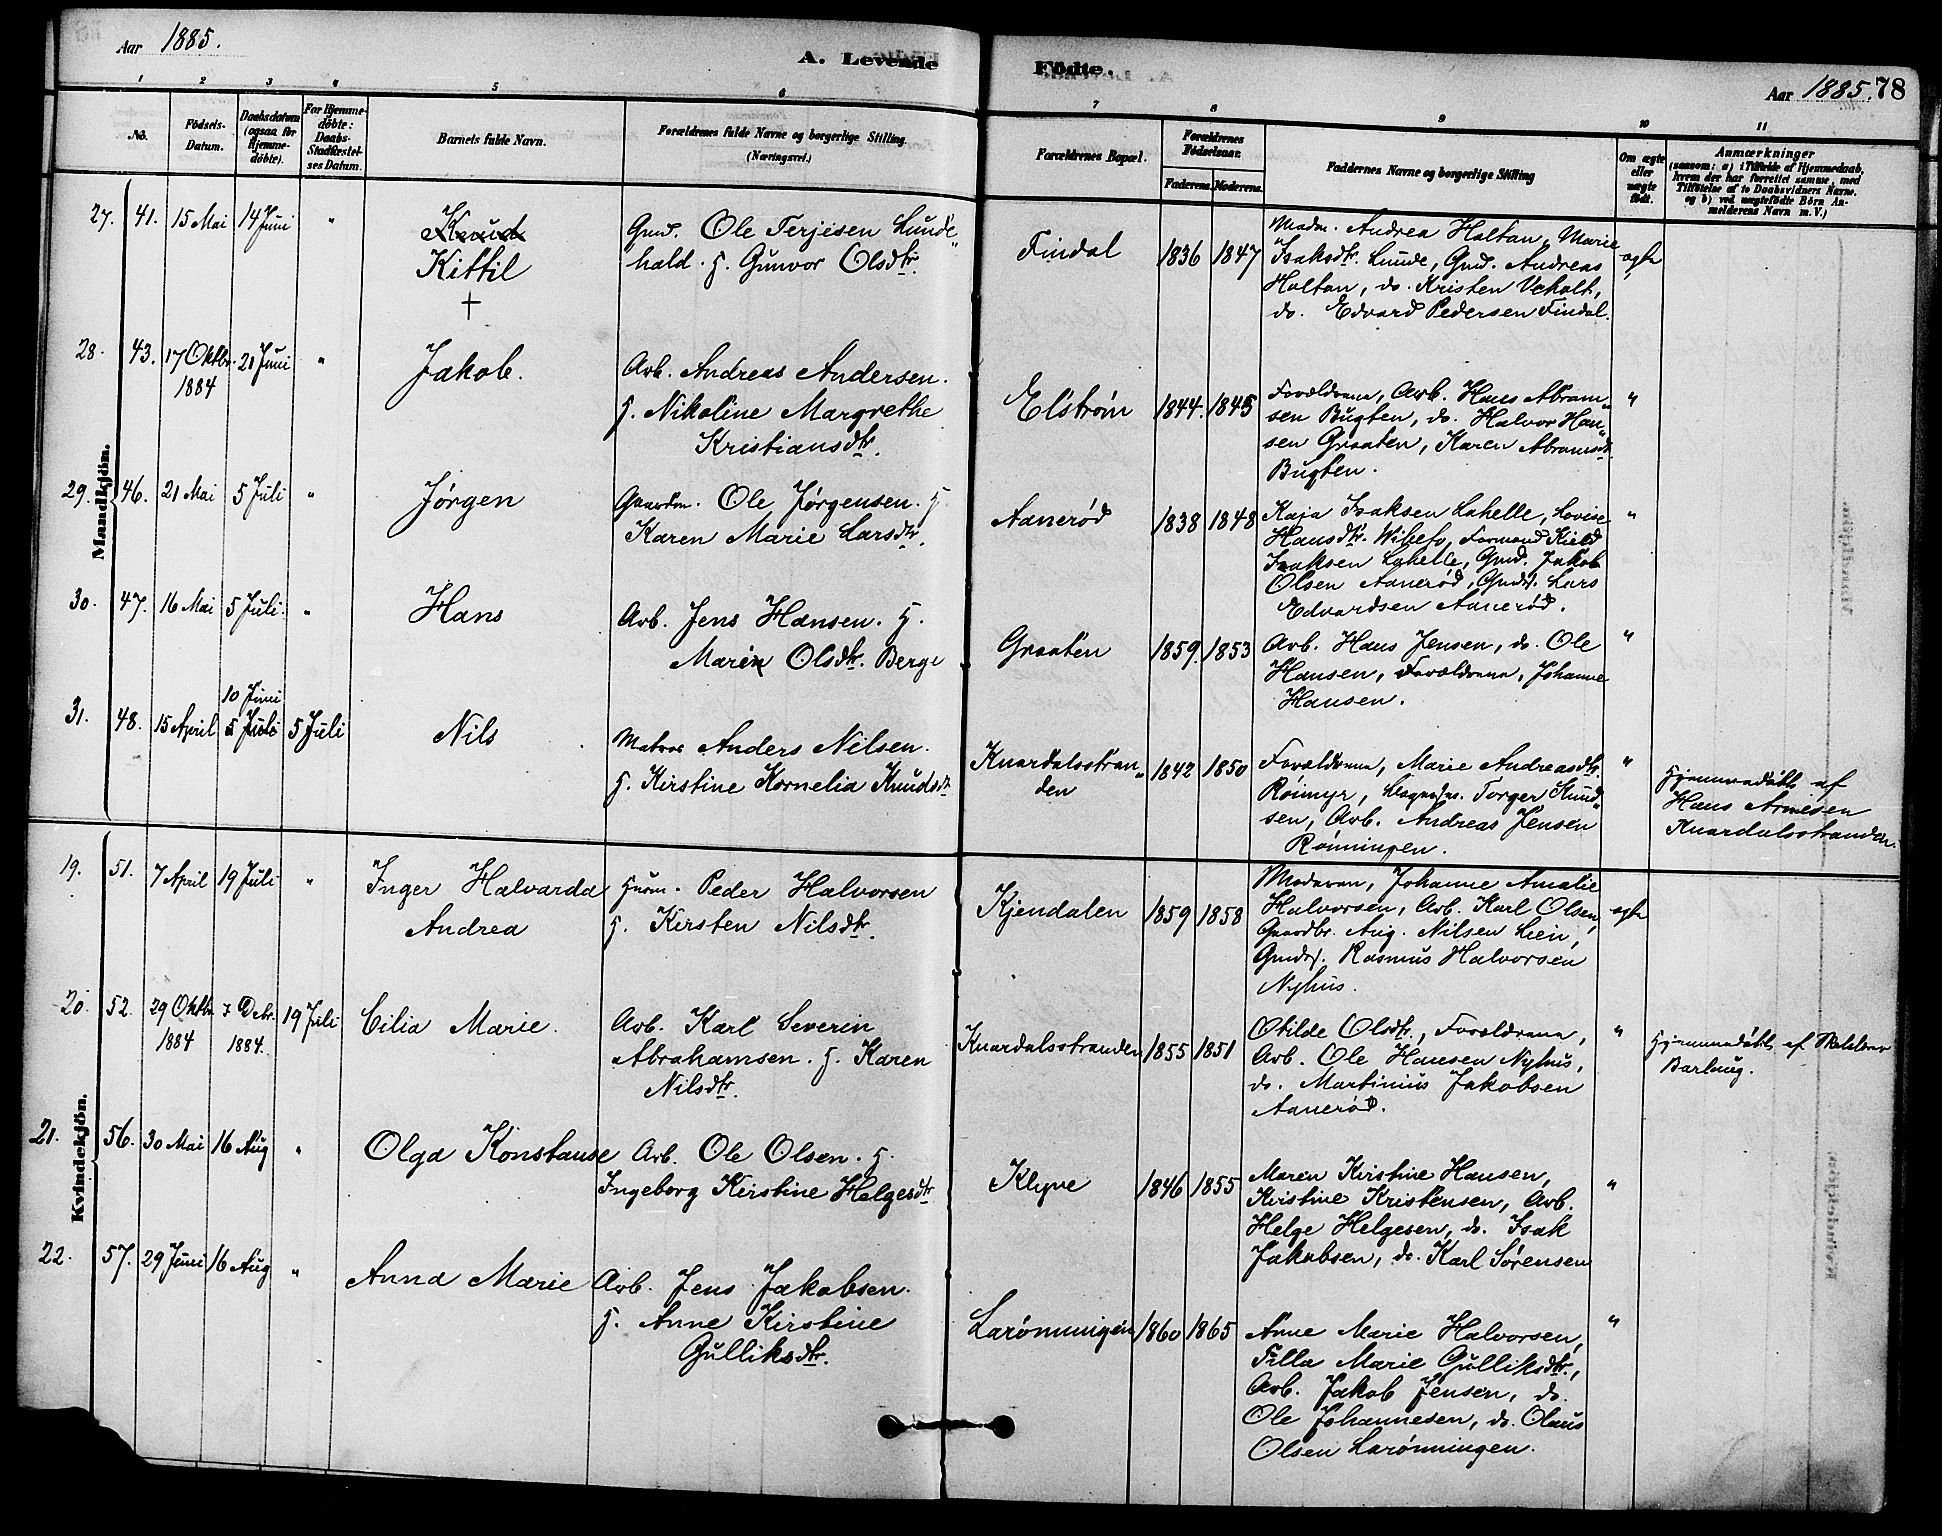 Aar 1885.
A. Levende Födte.
Aar 1885. 78
1 2 3 4 5 6 7 8 9 10 11
No.
Födsels-Datum.
Daabsdatum (ogsaa for Hjemme-döbte).
For Hjemme-döbte: Daabs-Stadfæstel-ses Datum.
Barnets fulde Navn.
Forældrenes fulde Navne og borgerlige Stilling. (Næringsvei.)
Forældrenes Bopæl.
Forældrenes Födselsaar.
Faderens. Moderens.
Faddernes Navne og borgerlige Stilling
Om ægte eller uægte födt.
Anmærkninger
(saasom: a) i Tilfælde af Hjemmedaab, hvem der har forrettet samme, med Tilföielse af to Daabsvidners Navne. og b) ved uægtefödte Börn Anmelderens Navn m. V.)
Mandkjön.
27. 41. 15 Mai 14 Juni "
Knud
Kittil
+
Gmd. Ole Terjesen Lunde"
hald. H. Gunvor Olsdtr.
Findal 1836 1847
Madm. Andrea Holtan, Marie
Isaksdtr. Lunde, Gmd. Andreas
Holtan, do. Kristen Veholt,
do. Edvard Pedersen Findal.
ægte
28. 43. 17 Oktbr. 1884 21 Juni "
Jakob.
Arb. Andreas Andersen.
H. Nikoline Margrethe
Kristiansdtr.
Elstrøm 1844. 1845
Forældrene, Arb. Hans Abram"
sen Bugten, do. Halvor Han"
sen Graaten, Karen Abramsdt.
Bugten.
"
29. 46. 21 Mai 5 Juli "
Jørgen
Gaardm. Ole Jørgensen. H
Karen Marie Larsdtr.
Aanerød 1838 1848
Kaja Isaksen Lahelle, Lovise
Hansdtr. Wibeto, Formand Kield
Isaksen Lahelle, Gmd. Jakob
Olsen Aanerød, Gmds. Lars
Edvardsen Aanerød.
"
30. 47. 16 Mai 5 Juli. "
Hans
Arb. Jens Hansen. H.
Maren Olsdtr. Berge
Graaten 1859. 1853
Arb. Hans Jensen, do. Ole
Hansen, Forældrene, Johanne
Hansen.
"
31. 48. 15 April 10 Juni
5 Juli 5 Juli
Nils
Matros Anders Nilsen.
H. Kirstine Kornelia Knudsdt
Knardalsstran"
den 1842 1850
Forældrene, Marie Andreasdtr.
Røimyr, Torger Knud"
sen, Arb. Andreas Jensen
Rønningen.
"
Hjemmedøbt af
Hans Arnesen
Knardalsstranden.
Kvindekjön.
19. 51. 7 April 19 Juli "
Inger Halvarda
Andrea
Husm. Peder Halvorsen
H. Kirsten Nilsdtr.
Kjendalen 1859 1858
Moderen, Johanne Amalie
Halvorsen, Arb. Karl Olsen,
Gaardbr. Aug. Nilsen Lien,
Gmds. Rasmus Halvorsen
Nyhus.
ægte
20. 52. 29 Oktbr. 1884 7 Debr. 1884. 19 Juli
Cilia Marie.
Arb. Karl Severin
Abrahamsen. H. Karen
Nilsdtr.
Knardalsstranden 1855 1851
Otilde Olsdtr., Forældrene,
Arb. Ole Hansen Nyhus,
do. Martinius Jakobsen
Aanerød.
"
Hjemmedøbt af
Barlaug.
21. 56. 30 Mai 16 Aug "
Olga Konstanse
Arb. Ole Olsen. H.
Ingeborg Kirstine Helgesdtr
Klyve 1846 1855
Maren Kirstine Hansen,
Kirstine Kristensen, Arb.
Helge Helgesen, do. Isak
Jakobsen, do. Karl Sørensen
"
22. 57. 29 Juni 16 Aug "
Anna Marie
Arb. Jens Jakobsen.
H. Anne Kirstine
Gulliksdtr.
Larønningen 1860 1865
Anne Marie Halvorsen,
Tilla Marie Gulliksdtr.,
Arb. Jakob Jensen, do.
Ole Johannesen, do. Olaus
Olsen Larønningen.
"